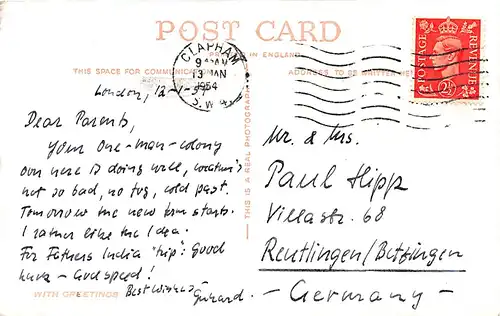 POST CARD
PRINTED IN ENGLAND
THIS SPACE FOR COMMUNICATION
ADDRESS TO BE WRITTEN HERE
CLAPHAM
13 JAN
1954
S.W.4.
POSTAGE
REVENUE
2½
London, 12-1-54
Dear Parents,
Your one-man-colony
over here is doing well, weather's
not so bad, no fog, cold past.
Tomorrow the new term starts.
I rather like the Idea.
For Fathers India "trip": good
luck - Godspeed!
Best wishes
Gerhard.
WITH GREETINGS
THIS IS A REAL PHOTOGRAPH
Mr. & Mrs.
Paul Hipp
Villastr. 68
Reutlingen/Betzingen
- Germany -